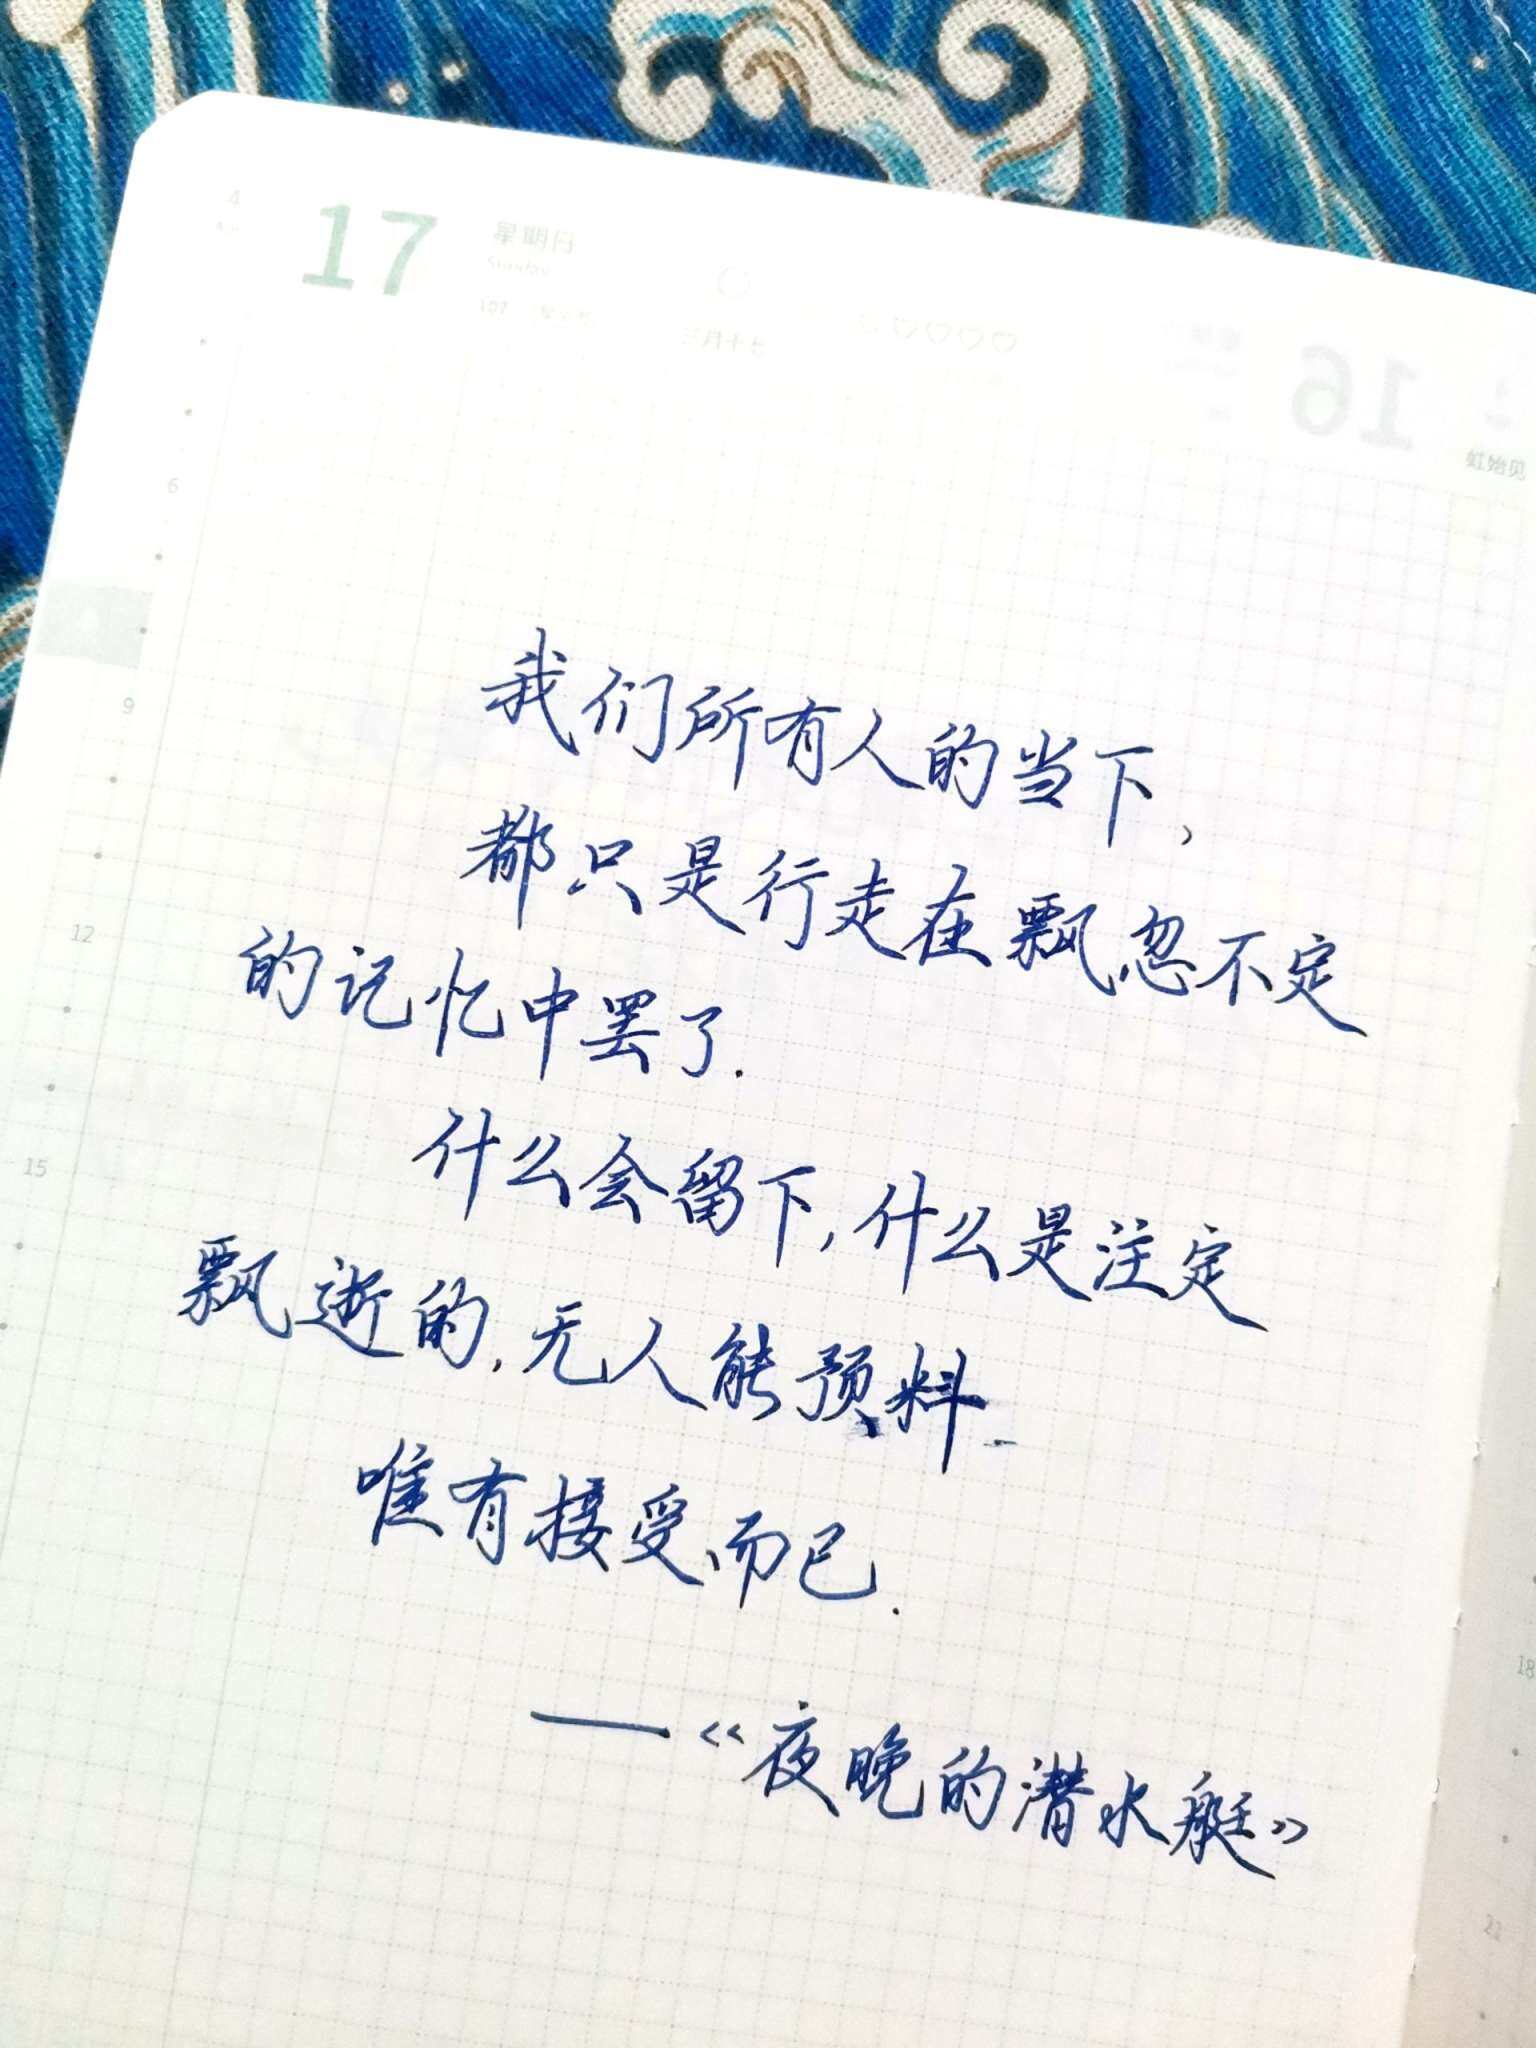 4
17
星期日
Sunday
107
三月十七
16
虹始见
6
9
12
15
18
21
我们所有人的当下,
都只是行走在飘忽不定
的记忆中罢了.
什么会留下,什么是注定
飘逝的,无人能预料.
唯有接受而已.
——《夜晚的潜水艇》